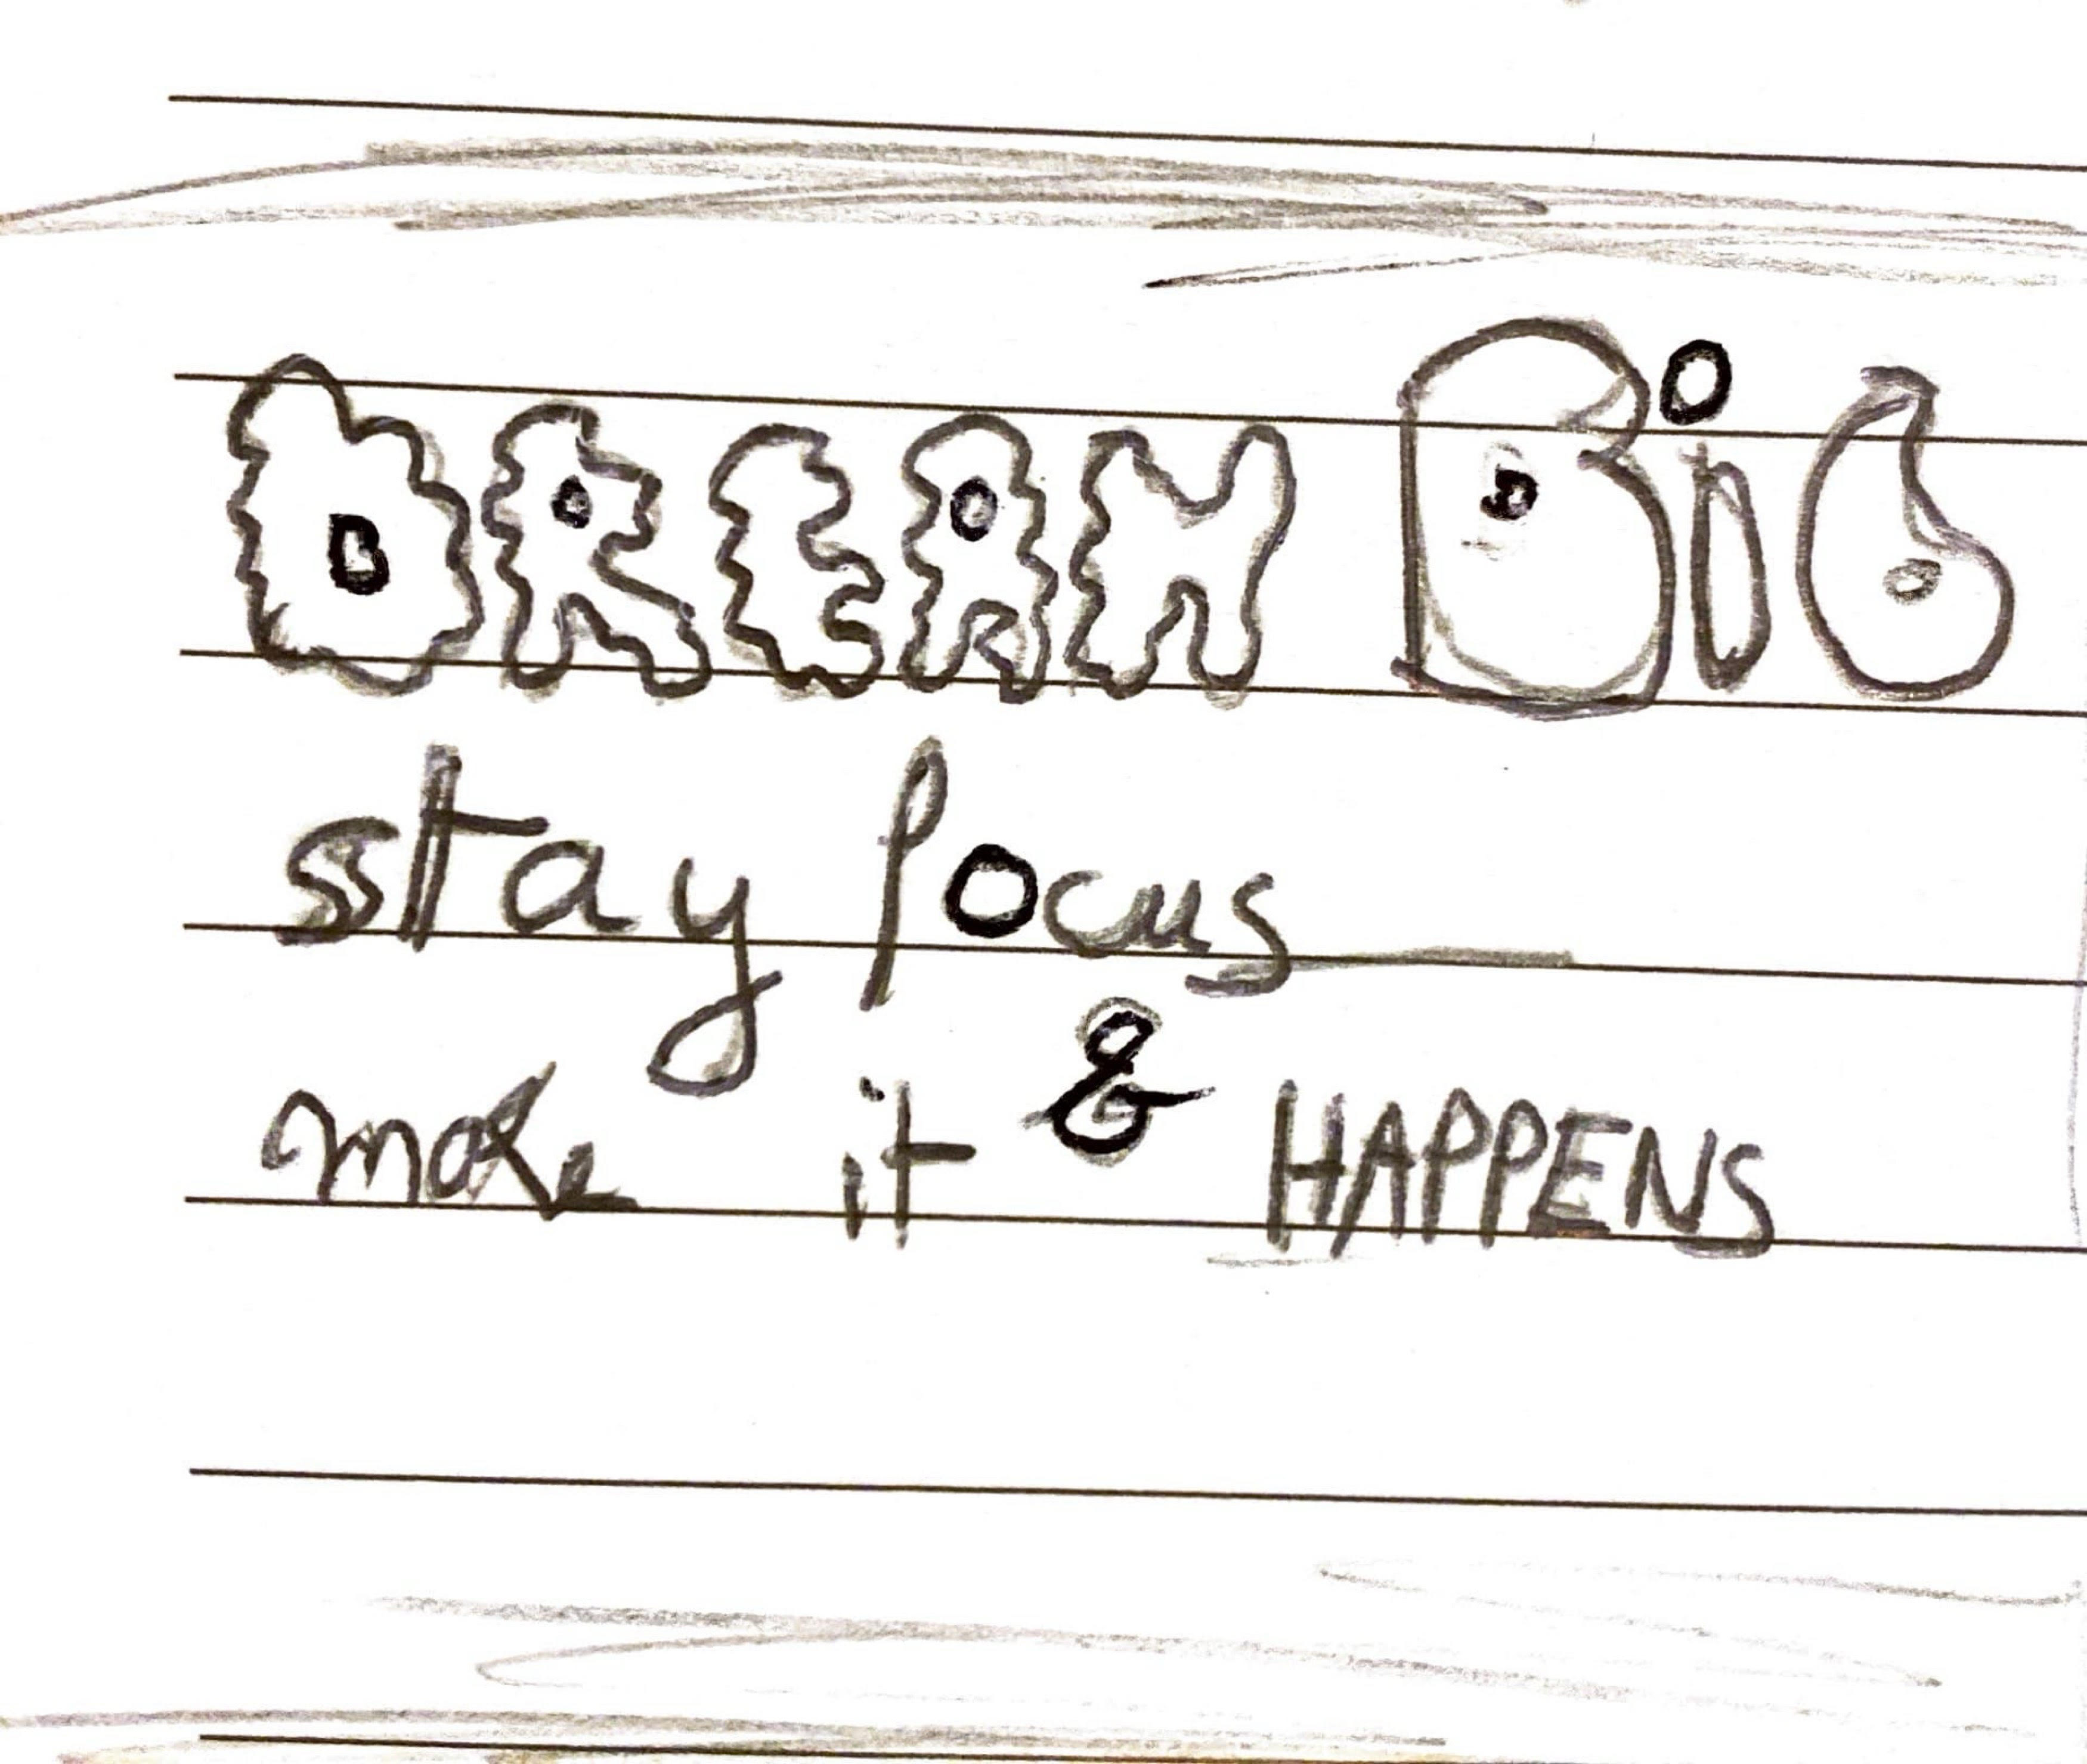 DREAM BiG
stay focus
make it & HAPPENS